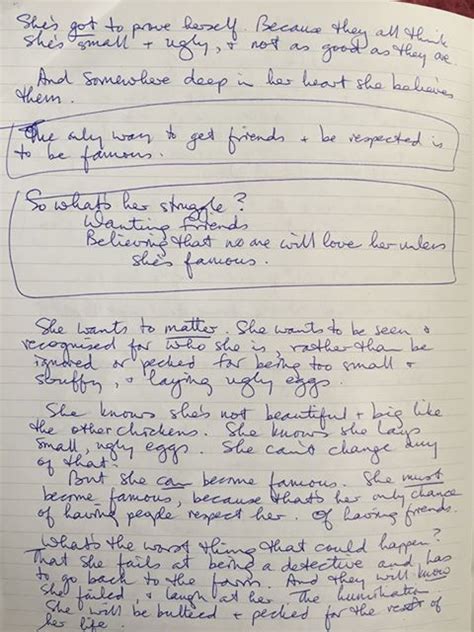 She's got to prove herself. Because they all think
she's small + ugly, + not as good as they are.
And somewhere deep in her heart she believes
them.
The only way to get friends + be respected is
to be famous.
So what's her struggle?
Wanting friends
Believing that no one will love her unless
she's famous.
She wants to matter. She wants to be seen +
recognised for who she is, rather than be
ignored or pecked for being too small +
scruffy, + laying ugly eggs.
She knows she's not beautiful + big like
the other chickens. She knows she lays
small, ugly eggs. She can't change any
of that.
But she can become famous. She must
become famous, because that's her only chance
of having people respect her. Of having friends.
What's the worst thing that could happen?
That she fails at being a detective and has
to go back to the farm. And they will know
she failed, + laugh at her. The humiliation.
She will be bullied + pecked for the rest of
her life.